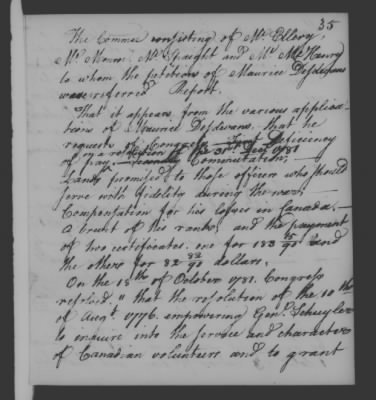 35
The Commee consisting of Mr Ellery,
Mr Monroe, Mr Spaight and Mr McHenry
to whom the petitions of Maurice Desdevans
were referred Report.
That it appears from the various applica-
tions of Maurice Desdevans, that he
requests of Congress Deficiency
of pay, Commutation,
Lands promised to those officers who should
serve with fidelity during the war,
Compensation for his losses in Canada.
A brevet of his rank, and the payment
of two certificates, one for 183 /90 and
the other for 82 /90 dollars.
On the 18th of October 1781. Congress
resolvd. "that the resolution of the 10th
of Augt. 1776. empowering Genl. Schuyler
to enquire into the service and character
of Canadian volunteers and to grant